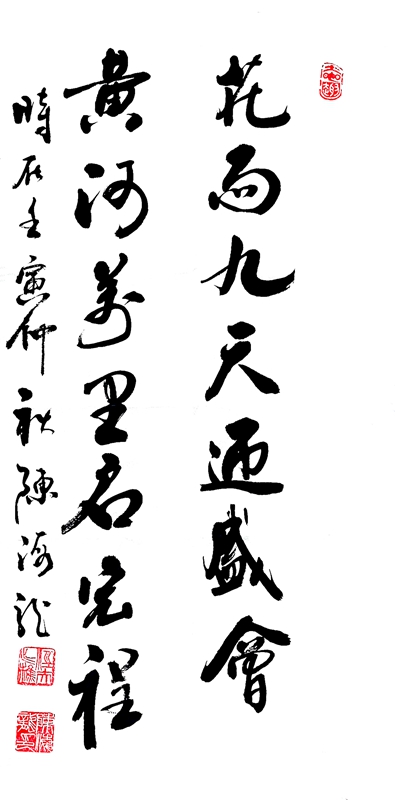 花雨九天迎盛會
黄河萬里启宏程
時在壬寅仲秋陳海龍